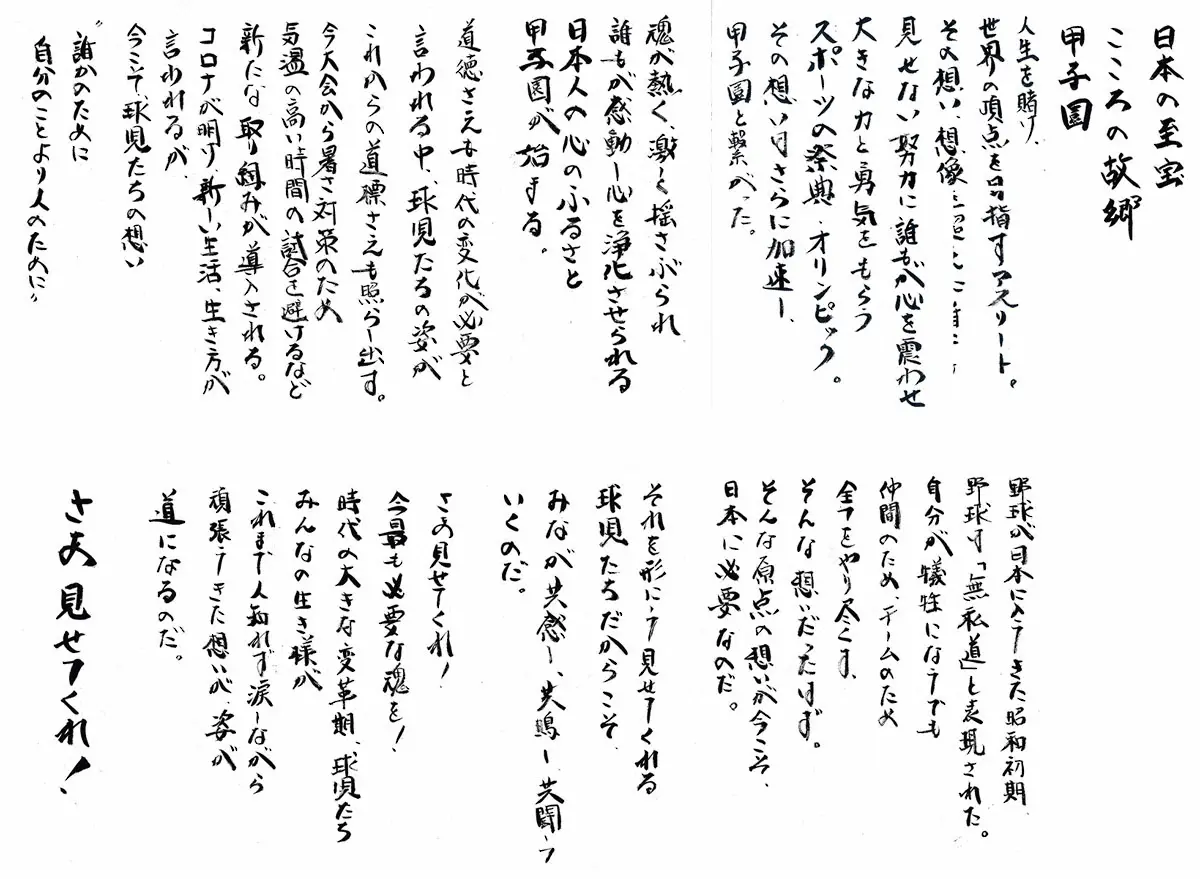 日本の至宝
こころの故郷
甲子園
人生を賭け、
世界の頂点を目指すアスリート。
その想い、想像を超え、
見せない努力に誰もが心を震わせ
大きな力と勇気をもらう
スポーツの祭典・オリンピック。
その想いはさらに加速し、
甲子園と繋がった。
魂が熱く、激しく揺さぶられ
誰もが感動し心を浄化させられる
日本人の心のふるさと
甲子園が始まる。
道徳さえも時代の変化が必要と
言われる中、球児たちの姿が
これからの道標さえも照らし出す。
今大会から暑さ対策のため
気温の高い時間の試合を避けるなど
新たな取り組みが導入される。
コロナが明け新しい生活、生き方が
言われるが、
今こそ、球児たちの想い
"誰かのために
自分のことより人のために"
野球が日本に入ってきた昭和初期
野球は「無私道」と表現された。
自分が犠牲になってでも
仲間のため、チームのため
全てをやり尽くす、
そんな想いだったはず。
そんな原点の想いが今こそ、
日本に必要なのだ。
それを形にして見せてくれる
球児たちだからこそ、
みなが共感し、共鳴し共闘して
いくのだ。
さあ見せてくれ!
今最も必要な魂を!
時代の大きな変革期、球児たち
みんなの生き様が
これまで人知れず涙しながら
頑張ってきた想いが、姿が
道になるのだ。
さあ見せてくれ!